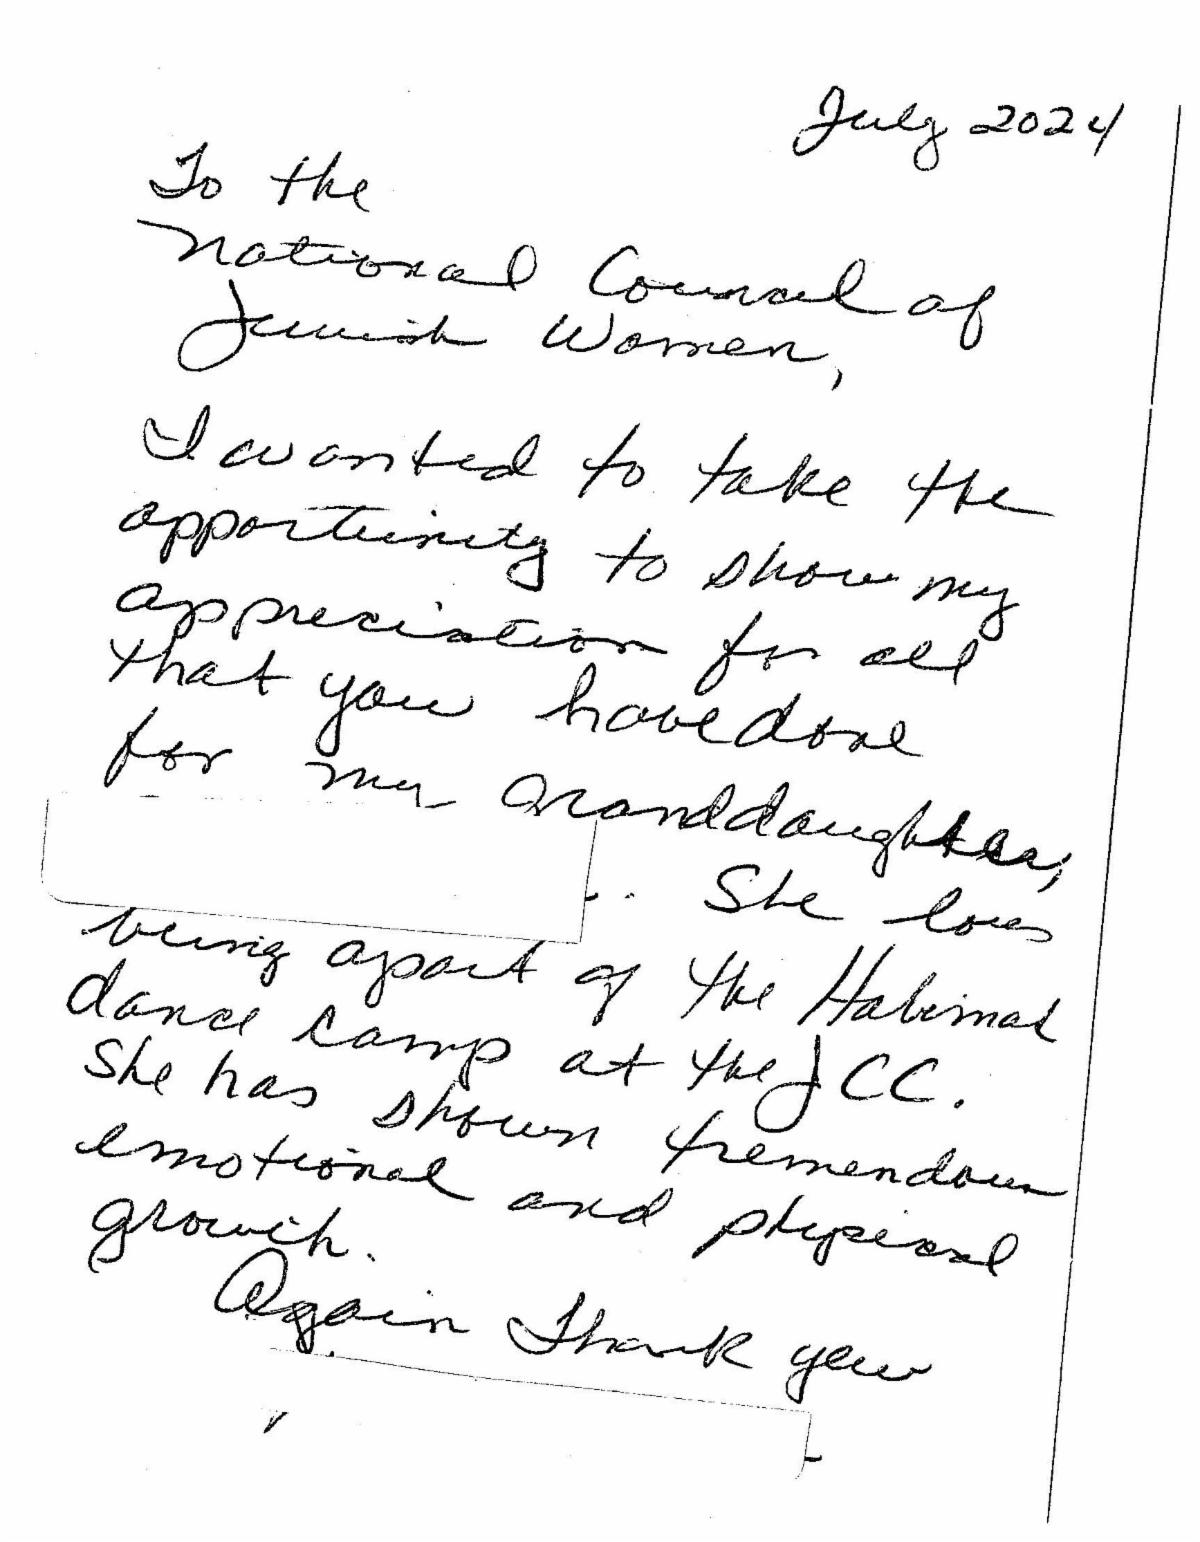 July 2024
To the
National Council of
Jewish Women,
I wanted to take the
opportunity to show my
appreciation for all
that you have done
for my Granddaughter,
She loves
being apart of the Habimat
dance camp at the JCC.
She has shown tremendous
emotional and physical
growth.
Again Thank you